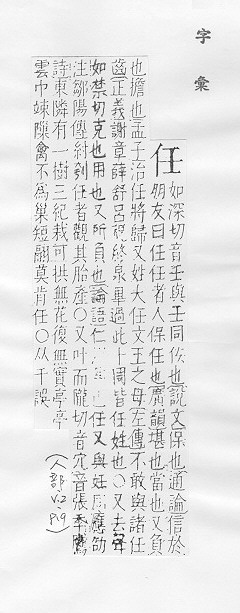 字彙
任 如深切音壬與壬同佚也說文保也通論信於
朋友曰任任者人保任也廣韻堪也當也又負
也擔也孟子治任將歸又姓大任文王之母左傳不敢與諸任
齒正義謝章薛舒呂祝終泉畢過此十國皆任姓也○又去聲
如禁切克也用也又所負也論語仁 任又與妊同應劭
注鄒陽傳紂刳任者觀其胎產○又叶而隴切音宂音張季鷹
詩東隣有一樹三紀栽可拱無花復無實亭亭
雲巾竦隙禽不為巢短翮莫肯任○从千誤
(人部 V.2-P9)